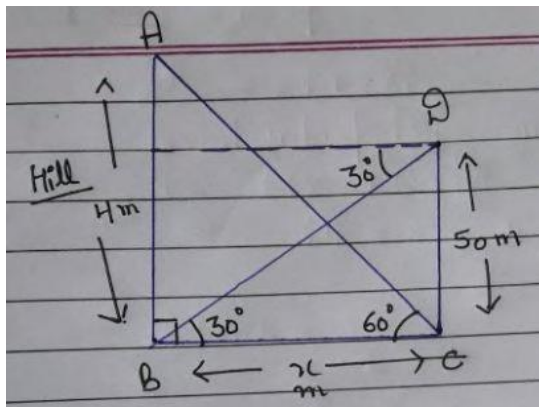 A
D
30°
Hill
Hm
50m
30°
60°
B
x
m
C